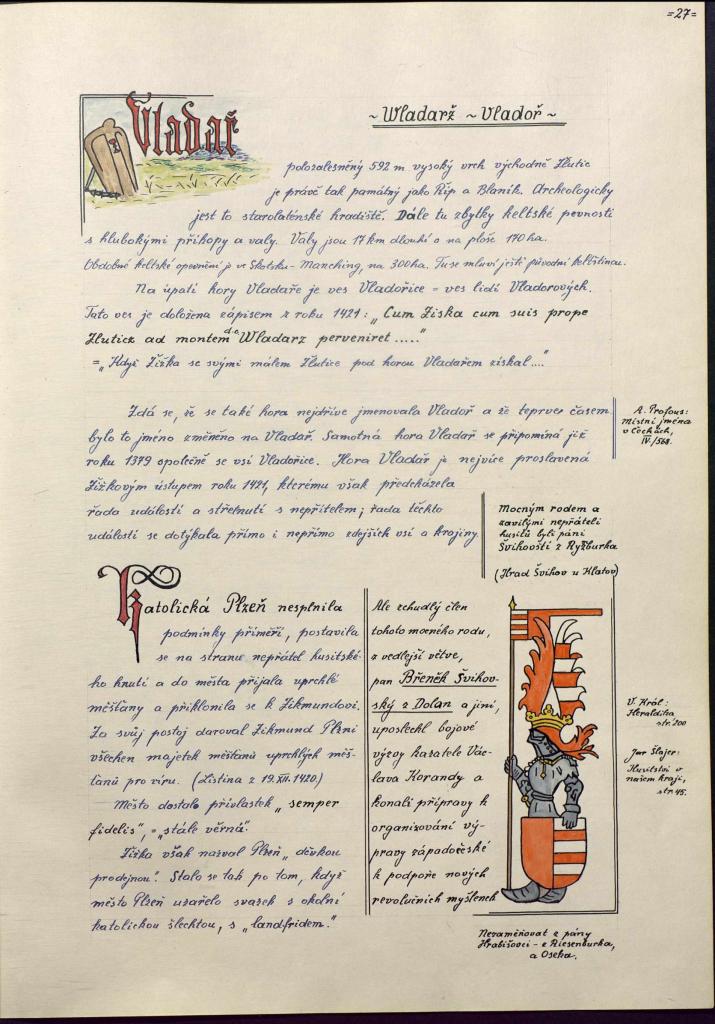 =27=
Vladař
~ Wladarž ~ Vladoř ~
polozalesněný 592 m vysoký vrch východně Žlutic
je právě tak památný jako Říp a Blaník. Archeologicky
jest to starolaténské hradiště. Dále tu zbytky keltské pevnosti
s hlubokými příkopy a valy. Valy jsou 17 km dlouhí o na ploše 170 ha.
Obdobné keltské opevnění je ve Skotsku - Manching, na 300 ha. Tu se mluví ještě původní keltštinou.
Na úpatí hory Vladaře je ves Vladořice = ves lidí Vladorových.
Tato ves je doložena zápisem z roku 1421: „Cum Ziska cum suis prope
Zluticz ad montem de Wladarz perveniret .....“
= „Když Žižka se svými málem Žlutice pod horou Vladařem získal ....“
Zdá se, že se také hora nejdříve jmenovala Vladoř a že teprver časem
bylo to jméno změněno na Vladař. Samotná hora Vladař se připomíná již
roku 1379 společně se vsí Vladořice. Hora Vladař je nejvíce proslavená
Žižkovým ústupem roku 1421, kterému však předcházela
řada událostí a střetnutí s nepřítelem; řada těchto
událostí se dotýkala přímo i nepřímo zdejších vsí a krajiny.
A. Profous:
Místní jména
v Čechách,
IV./568.
Mocným rodem a
zavilými nepřáteli
husitů byli páni
Švihovští z Ryžburka
(Hrad Švihov u Klatov)
Katolická Plzeň nesplnila
podmínky příměří, postavila
se na stranu nepřátel husitské-
ho hnutí a do města přijala uprchlé
měšťany a přiklonila se k Zikmundovi.
Za svůj postoj daroval Zikmund Plzni
všechen majetek měšťanů uprchlých měš-
ťanů pro víru. (Listina z 19.XII. 1420.)
Město dostalo přívlastek „semper
fidelis“, = „stále věrná“.
Žižka však nazval Plzeň „děvkou
prodejnou“. Stalo se tak po tom, když
město Plzeň uzavřelo svazek s okolní
katolickou šlechtou, s „landfrídem.“
Ale zchudlý člen
tohoto mocného rodu,
z vedlejší větve,
pan Břeněk Švihov-
ský z Dolan a jiní,
uposlechl bojové
výzvy kazatele Vác-
lava Korandy a
konali přípravy k
organizování vý-
pravy západočeské
k podpoře nových
revolučních myšlenek
V. Král:
Heraldika
str. 200
Jar Šlajer:
Husitství v
našem kraji,
str. 45.
Nezaměňovat z pány
Hrabišovci - z Riesenburka,
a Oseka.